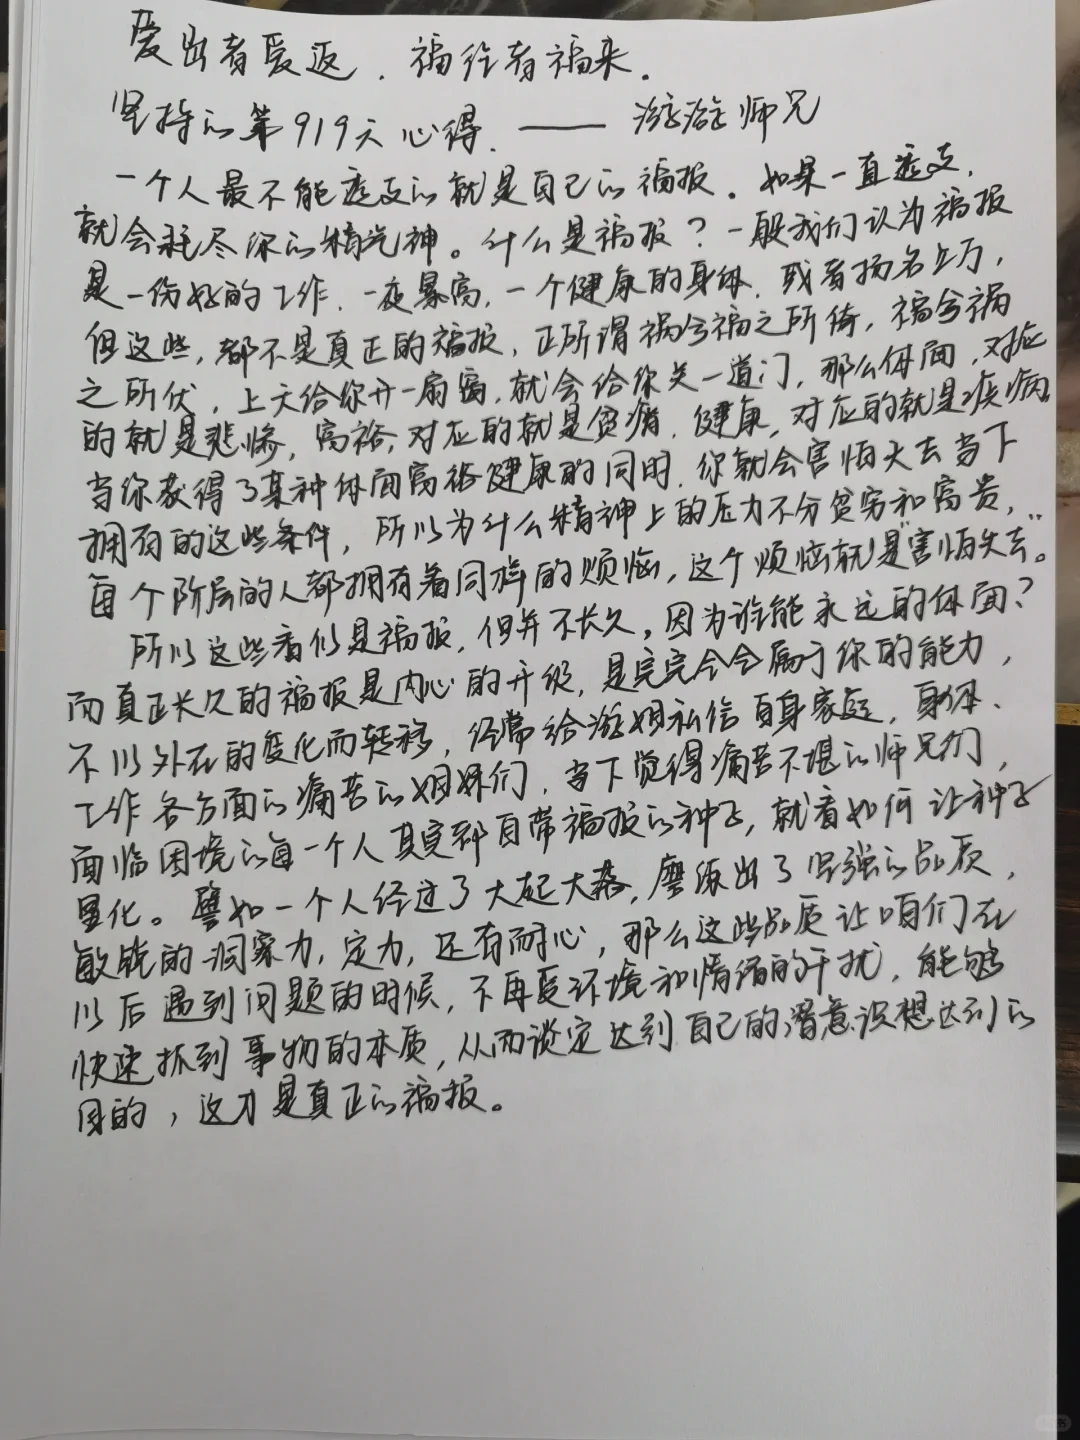 爱出者爱返，福往者福来。
坚持的第919天心得。——滋滋师兄
一个人最不能透支的就是自己的福报。如果一直透支，
就会耗尽你的精气神。什么是福报？一般我们认为福报
是一份好的工作，一夜暴富，一个健康的身体，或者扬名立万，
但这些，都不是真正的福报，正所谓祸兮福之所倚，福兮祸
之所伏，上天给你开一扇窗，就会给你关一道门，那么体面，对应
的就是悲惨，富裕，对应的就是贫瘠，健康，对应的就是疾病，
当你获得了某种体面富裕健康的同时，你就会害怕失去当下
拥有的这些条件，所以为什么精神上的压力不分贫穷和富贵，
每个阶层的人都拥有着同样的烦恼，这个烦恼就是"害怕失去"。
所以这些看似是福报，但并不长久，因为谁能永远的体面？
而真正长久的福报是内心的升级，是完完全全属于你的能力，
不以外在的变化而转移，经常给滋姐私信自身家庭，身体、
工作各方面的痛苦的姐妹们，当下觉得痛苦不堪的师兄们，
面临困境的每一个人其实都自带福报的种子，就看如何让种子
显化。譬如一个人经过了大起大落，磨练出了坚强的品质，
敏锐的洞察力，定力，还有耐心，那么这些品质让咱们在
以后遇到问题的时候，不再受环境和情绪的干扰，能够
快速抓到事物的本质，从而淡定达到自己的潜意识想达到的
目的，这才是真正的福报。